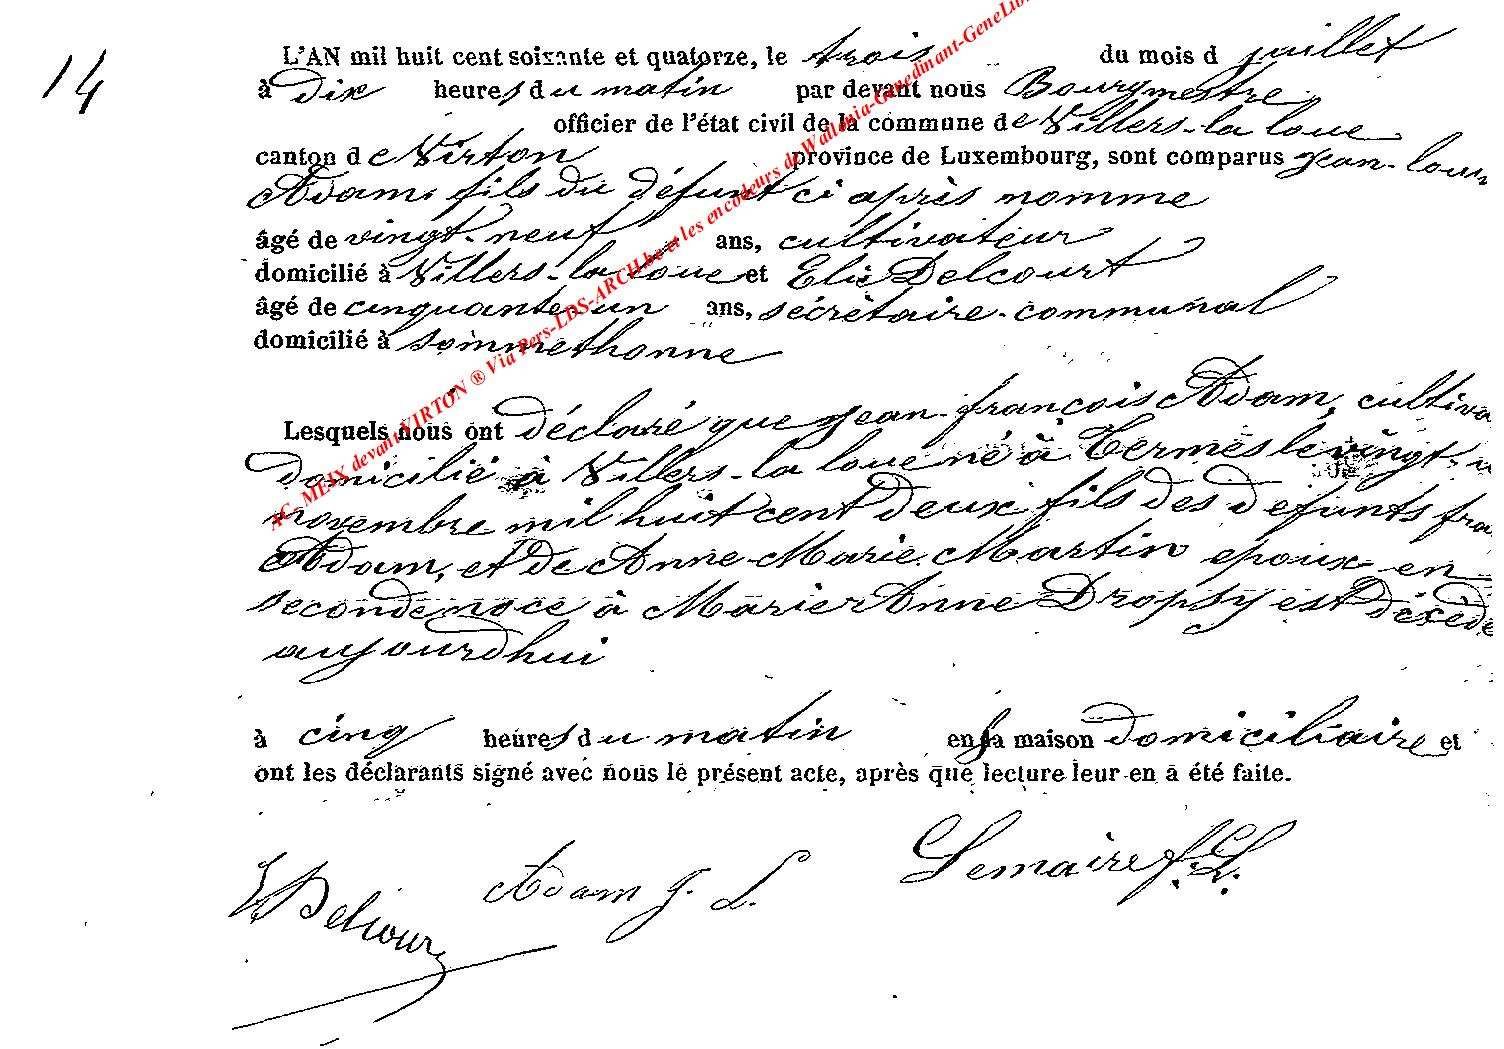 14
L'AN mil huit cent soixante et quatorze, le trois du mois d juillet
à Dix heures du matin par devant nous Bourgmestre
officier de l'état civil de la commune de Villers-la loue
canton de Virton province de Luxembourg, sont comparus Jean-louis
Adam, fils du défunt ci après nommé
âgé de vingt-neuf ans, cultivateur
domicilié à Villers-la loue et Elie Delcourt
âgé de cinquante-un ans, sécrètaire-communal
domicilié à Sommethonne
Lesquels nous ont déclaré que Jean-françois Adam, cultiva
domicilié à Villers-la loue né à Termes le vingt-
novembre mil huit cent deux fils des defunts fra
Adam, et de Anne-Marie Martin epoux en
seconde noce à Marie Anne Dropsy est décédé
aujourdhui
à cinq heures du matin en sa maison domiciliaire et
ont les déclarants signé avec nous le présent acte, après que lecture leur en a été faite.
E Delcourt Adam J. L. Lemaire f. L.
AC-MEIX devant VIRTON ® Via Pers-LDS-ARCH.be et les encodeurs de Wallonia-Genedinant-GeneLib